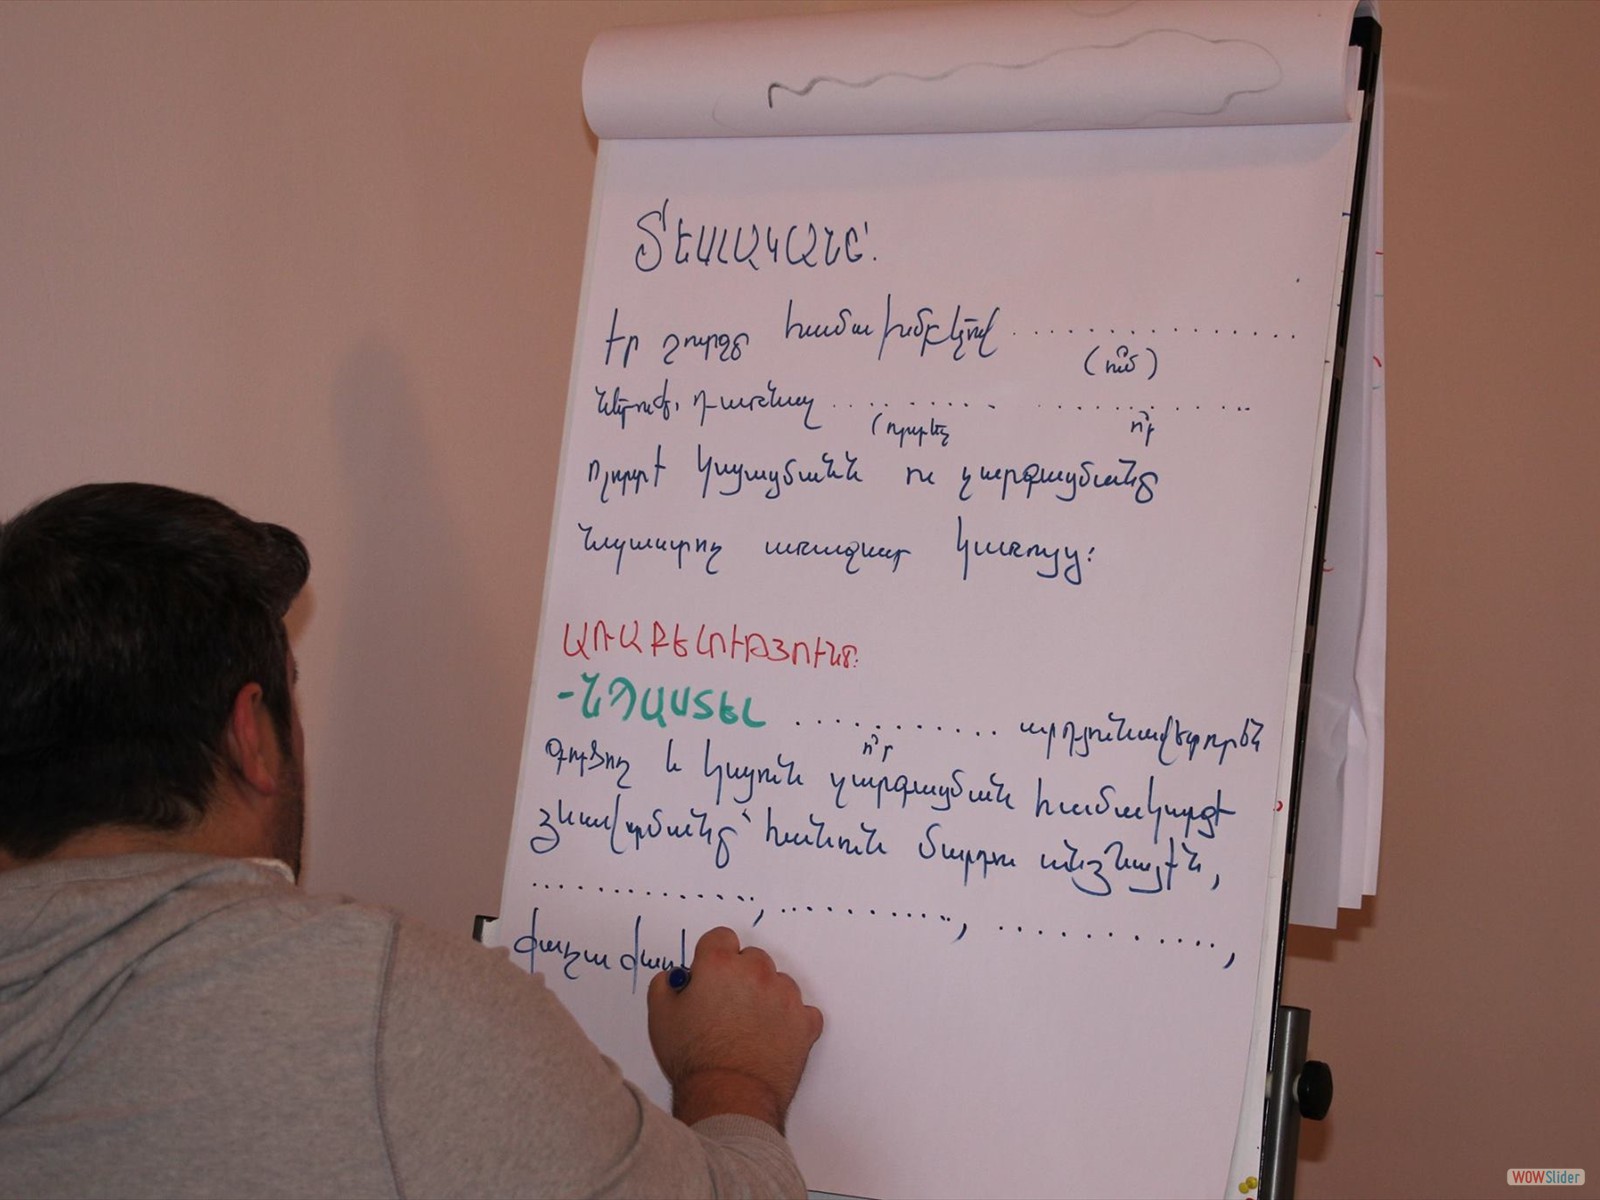 ՏԵՍԼԱԿԱՆԸ՝
Իր շուրջը համախմբելով ..............
(ո՞ւմ)
ներուժ, դառնալ .......... ..........
(որտեղ ո՞ր
ոլորտի կայացմանն ու զարգացմանը
նպաստող առաջատար կառույց:
ԱՌԱՔԵԼՈՒԹՅՈՒՆԸ:
-ՆՊԱՍՏԵԼ ........... արդյունավետորեն
ո՞ր
գործող և կայուն զարգացման համակարգի
ձևավորմանը՝ հանուն մարդու
............., ..........., ...........,
WOWSlider